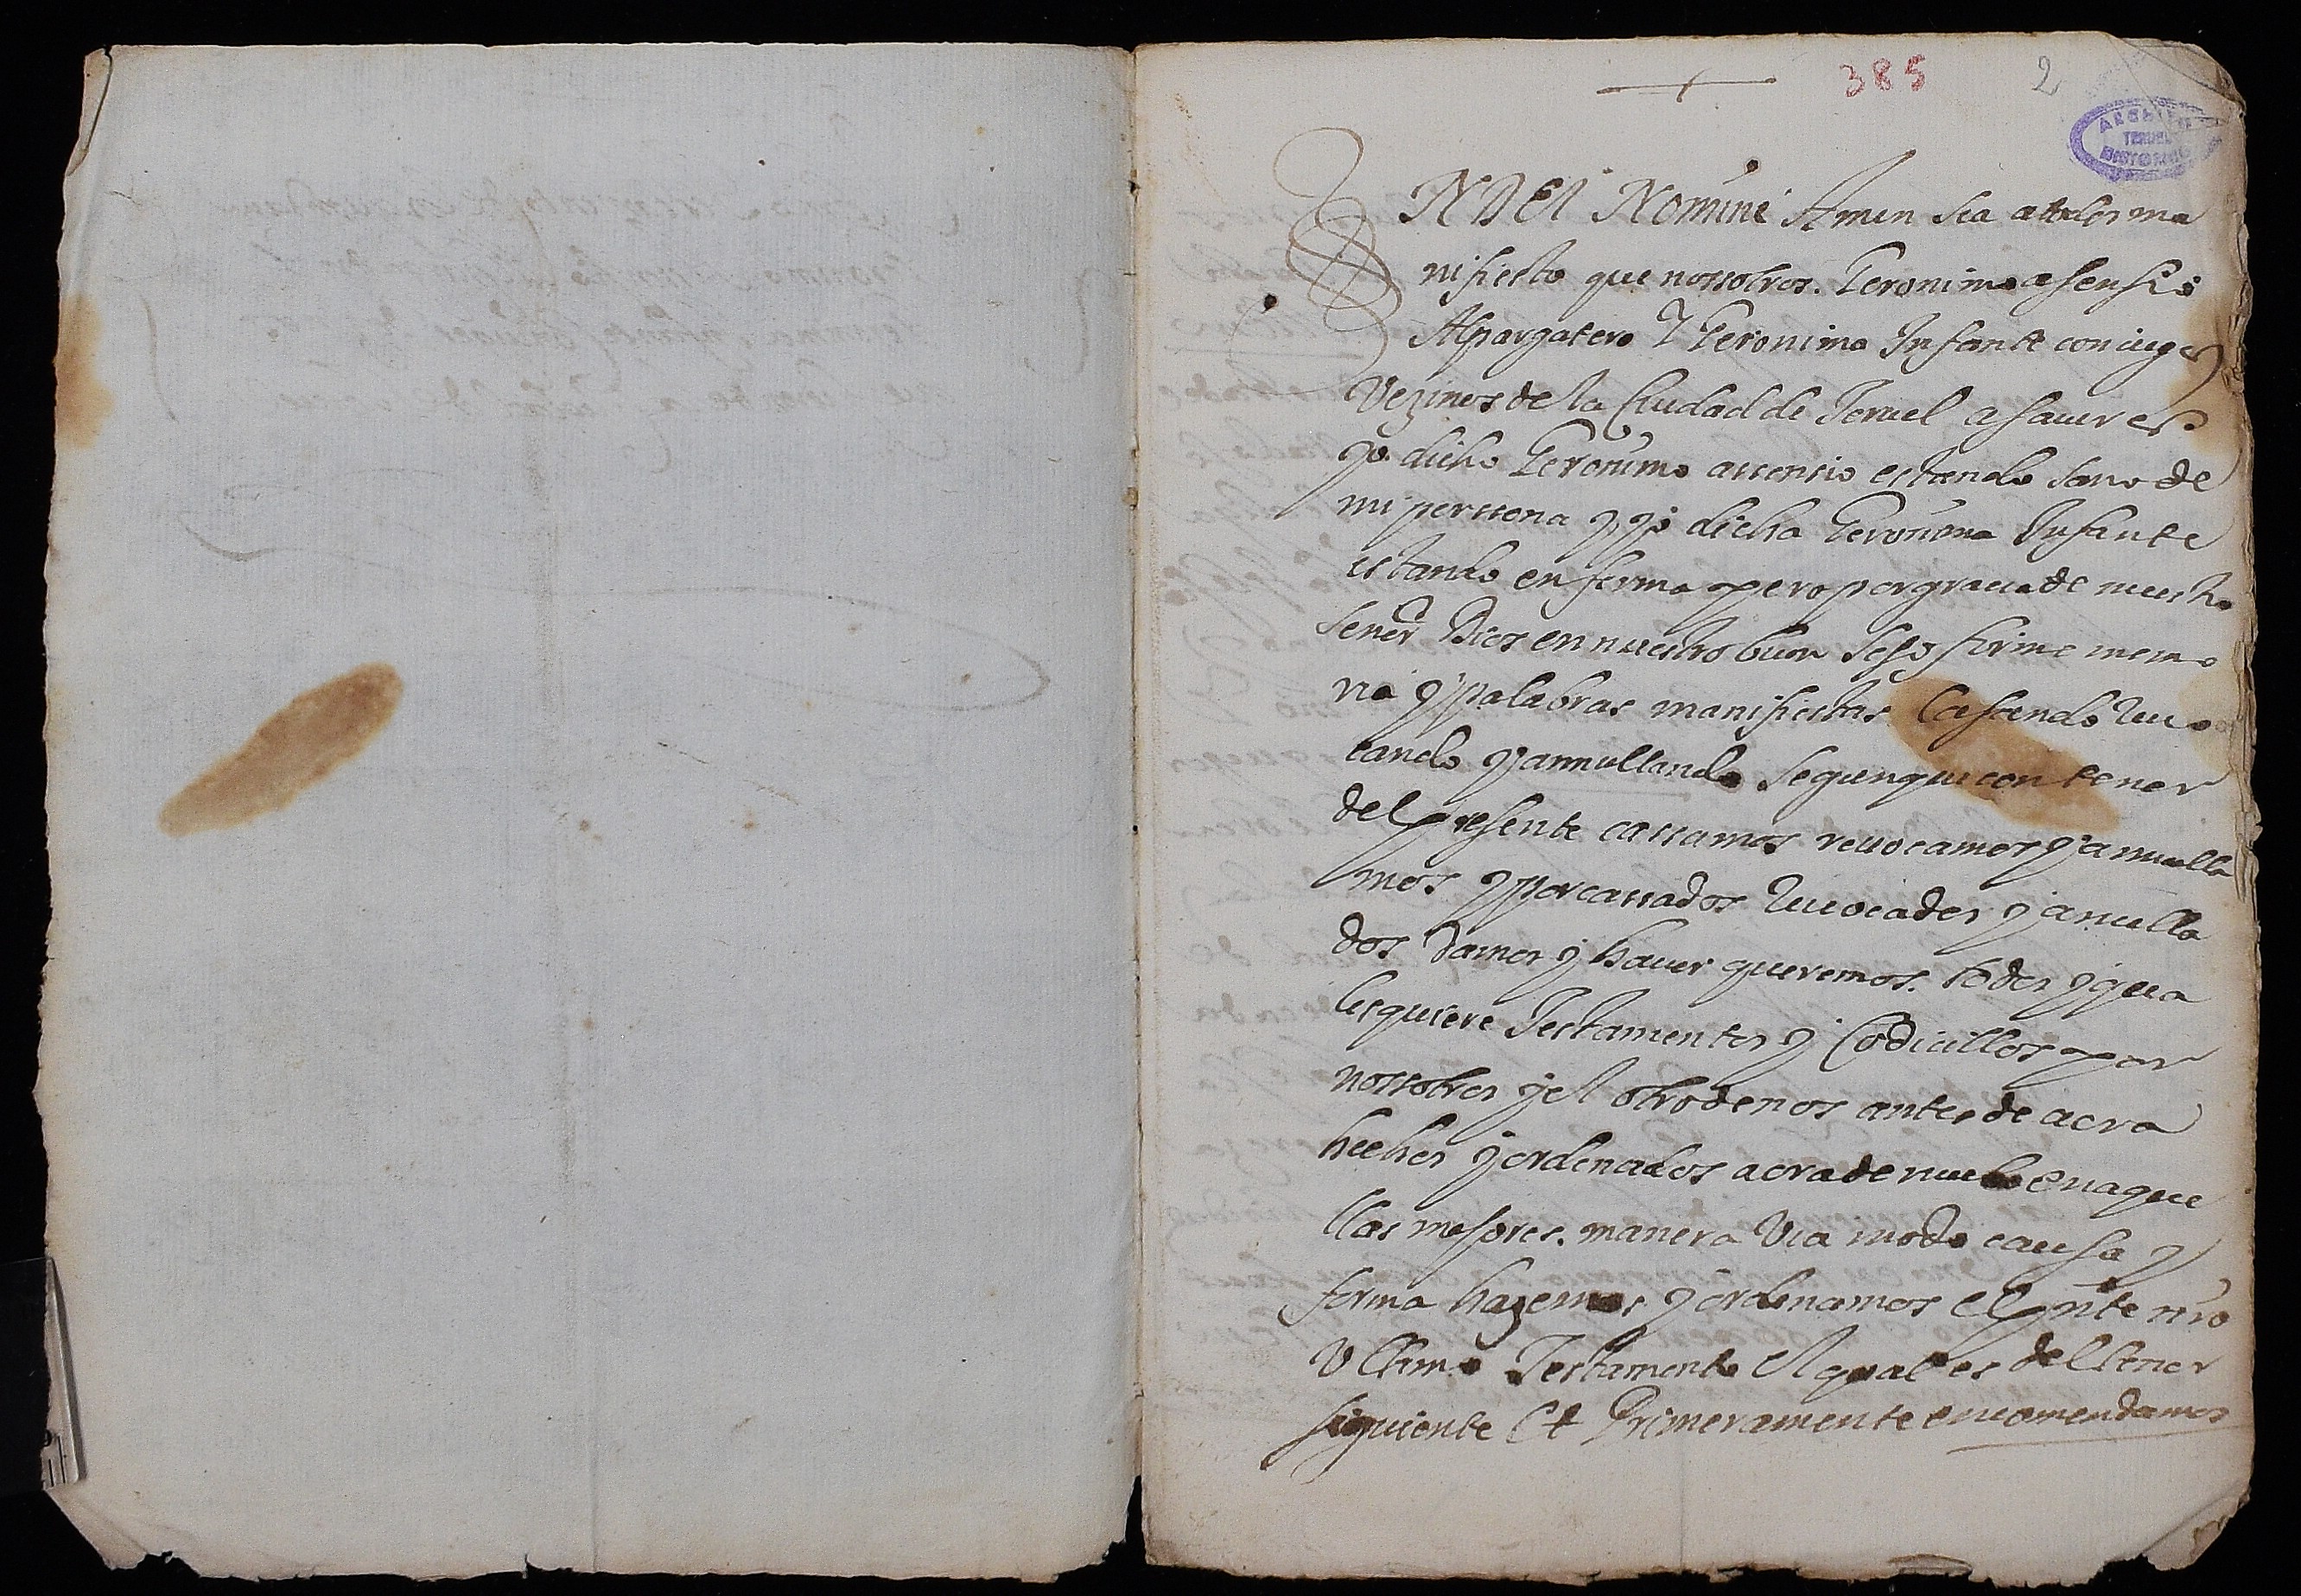 385 2
ARCHIVO
TERUEL
HISTORICO
IN DEI Nomine Amen sea a todos ma
nifiesto que nossotros. Geronimo asensio
Alpargatero Y Geronima Infante coniuges
Vezinos de la Ciudad de Teruel a sauer es.
yo. dicho Geronimo assensio estando sano de
mi perssona y yo dicha Geronima Infante
estando enferma pero por gracia de nuestro
señor Dios en nuestro buen seso firme memo
ria y palabras manifiestas Casando reuo
cando y annullando segun que con tenor
del presente cassamos reuocamos y annulla
mos y por cassados reuocados y anulla
dos damos y hauer queremos. todos y qua
lesquiere Testamentos y Codicillos por
nossotros y el otro de nos antes de aora
hechos y ordenados aora de nuebo en aque
llas mejores. manera via modo causa y
forma hazemos y ordenamos el pnte nro
Vltimo Testamento el qual es del tenor
siguiente Et Primeramente encomendamos